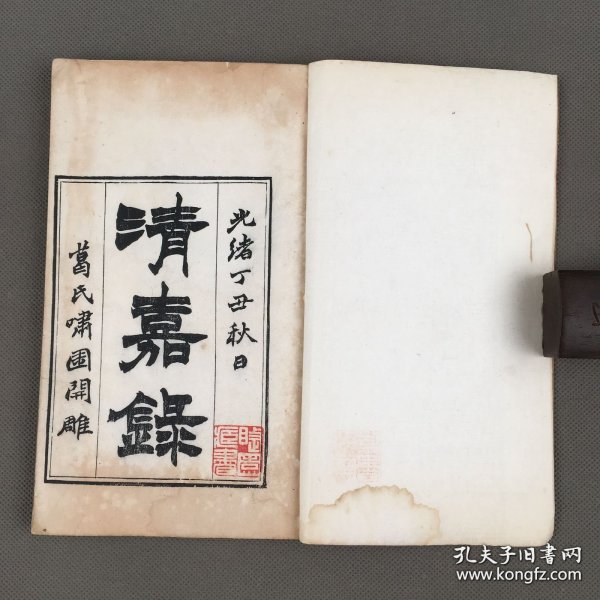 光绪丁丑秋日
清嘉錄
葛氏嘯園開雕
孔夫子旧书网
www.kongfz.com